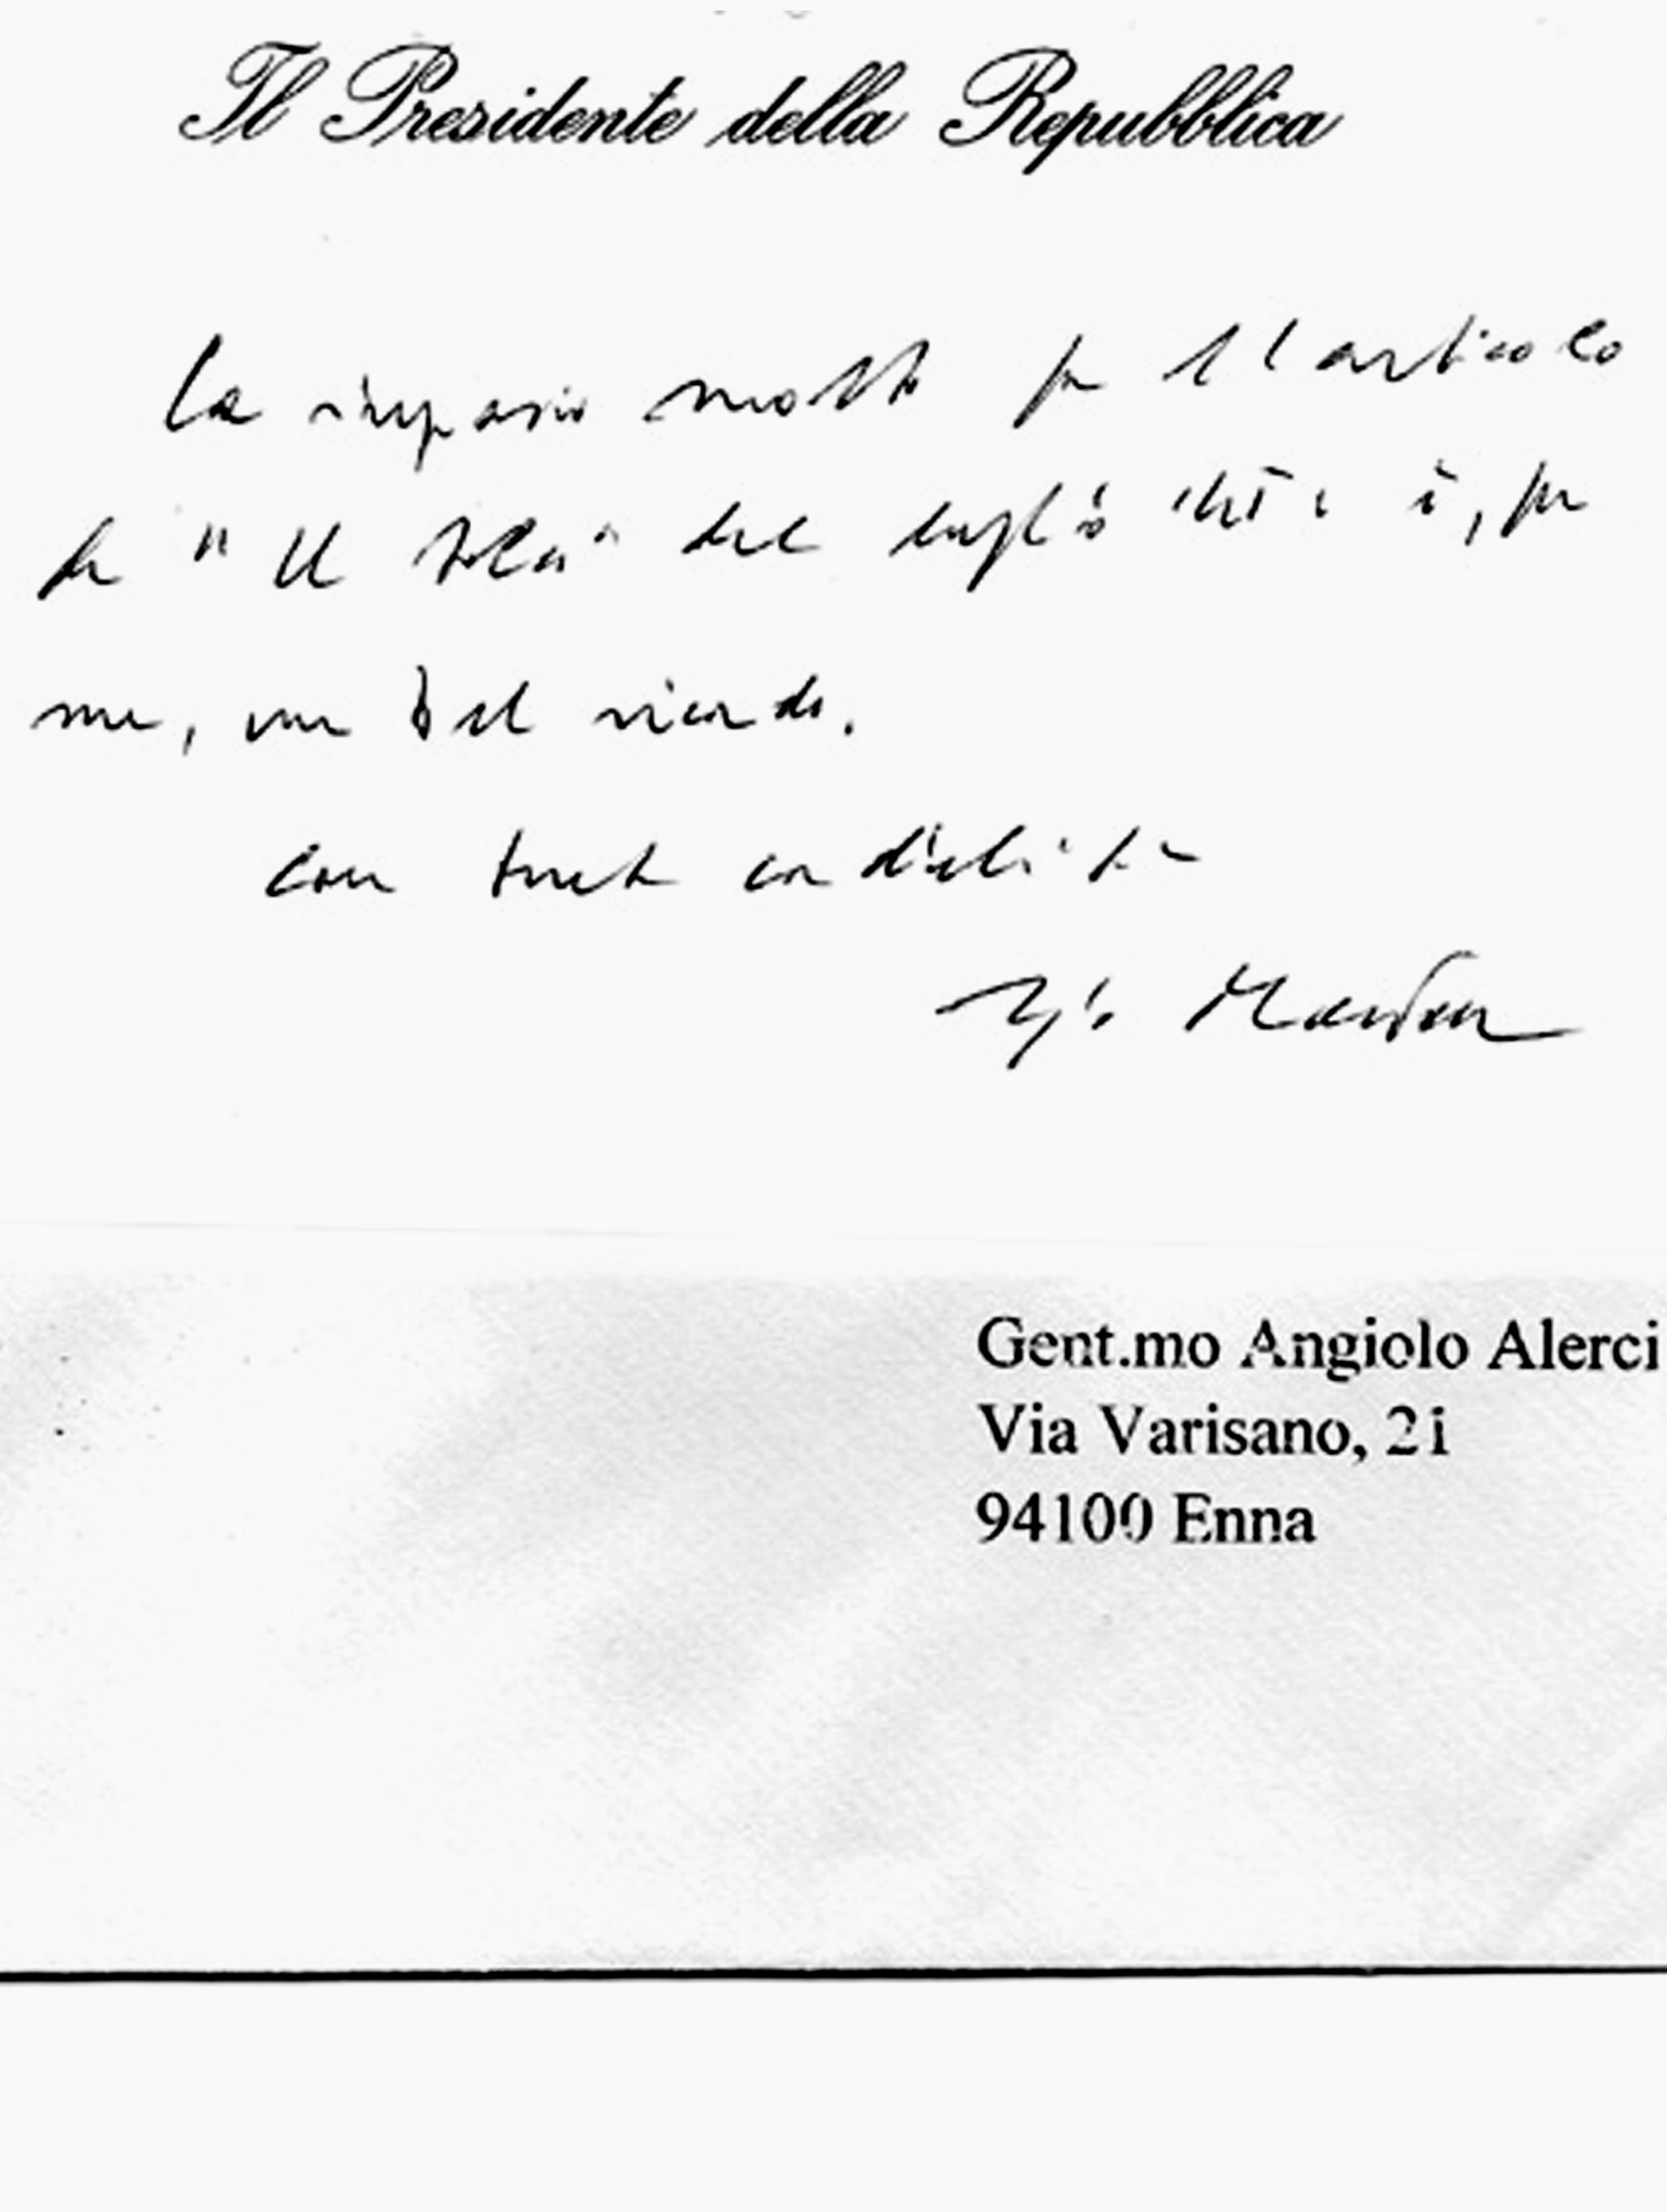 Il Presidente della Repubblica
La ringrazio molto per l'articolo
da "Il
del luglio è, per
me, un bel ricordo.
con molta cordialità
Gent.mo Angiolo Alerci
Via Varisano, 21
94100 Enna